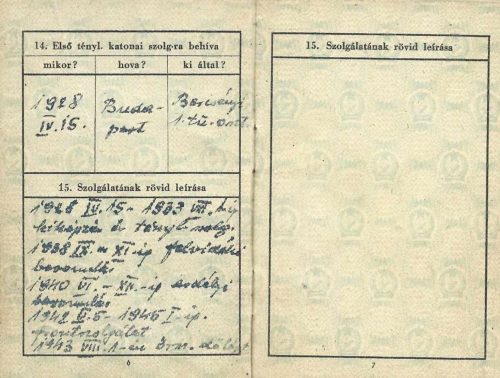 14. Első tényl. katonai szolg-ra behíva
mikor? hova? ki által?
1928 Buda- Bercsényi
IV. 15. pest 1. tü. oszt.
15. Szolgálatának rövid leírása
1928 IV. 15 - 1933 VIII. -ig
kiképzés és tényl. szolg.
1938 IX. - XI-ig felvidéki
bevonulás
1940 VI. - XII. -ig erdélyi
bevonulás
1942 V. 5 - 1945 I-ig.
frontszolgálat
1943 VIII 1-én
6
15. Szolgálatának rövid leírása
7